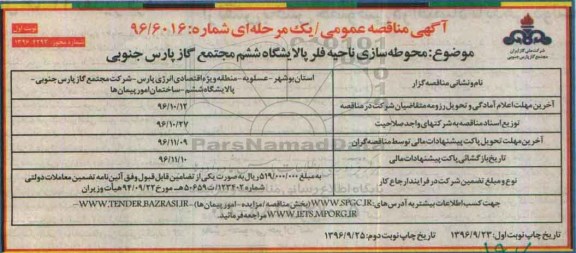 آگهی مناقصه عمومی/یک مرحله‌ای شماره: ۹۶/۶۰۱۶
نوبت اول
شماره مجوز: ۱۳۹۶.۴۲۹۲
شرکت ملی گاز ایران
مجتمع گاز پارس جنوبی
موضوع: محوطه‌سازی ناحیه فلر پالایشگاه ششم مجتمع گاز پارس جنوبی
نام و نشانی مناقصه‌گزار
استان بوشهر - عسلویه - منطقه ویژه اقتصادی انرژی پارس - شرکت مجتمع گاز پارس جنوبی - پالایشگاه ششم - ساختمان امور پیمان‌ها
آخرین مهلت اعلام آمادگی و تحویل رزومه متقاضیان شرکت در مناقصه
۹۶/۱۰/۱۲
توزیع اسناد مناقصه به شرکتهای واجد صلاحیت
۹۶/۱۰/۲۷
آخرین مهلت تحویل پاکت پیشنهادات مالی توسط مناقصه‌گران
۹۶/۱۱/۰۹
تاریخ بازگشائی پاکت پیشنهادات مالی
۹۶/۱۱/۱۰
نوع و مبلغ تضمین شرکت در فرایند ارجاع کار
به مبلغ ۵۱۹/۰۰۰/۰۰۰ ریال به صورت یکی از تضامین قابل قبول وفق آئین‌نامه تضمین معاملات دولتی شماره ۱۲۳۴۰۲/ت۵۰۶۵۹هـ مورخ ۹۴/۰۹/۲۲ هیأت وزیران
جهت کسب اطلاعات بیشتر به آدرس‌های: WWW.SPGC.IR (بخش مناقصه/مزایده - امور پیمان‌ها) - WWW.TENDER.BAZRASI.IR - WWW.IETS.MPORG.IR مراجعه فرمائید.
تاریخ چاپ نوبت اول: ۱۳۹۶/۹/۲۳ تاریخ چاپ نوبت دوم: ۱۳۹۶/۹/۲۵
ParsNamadData